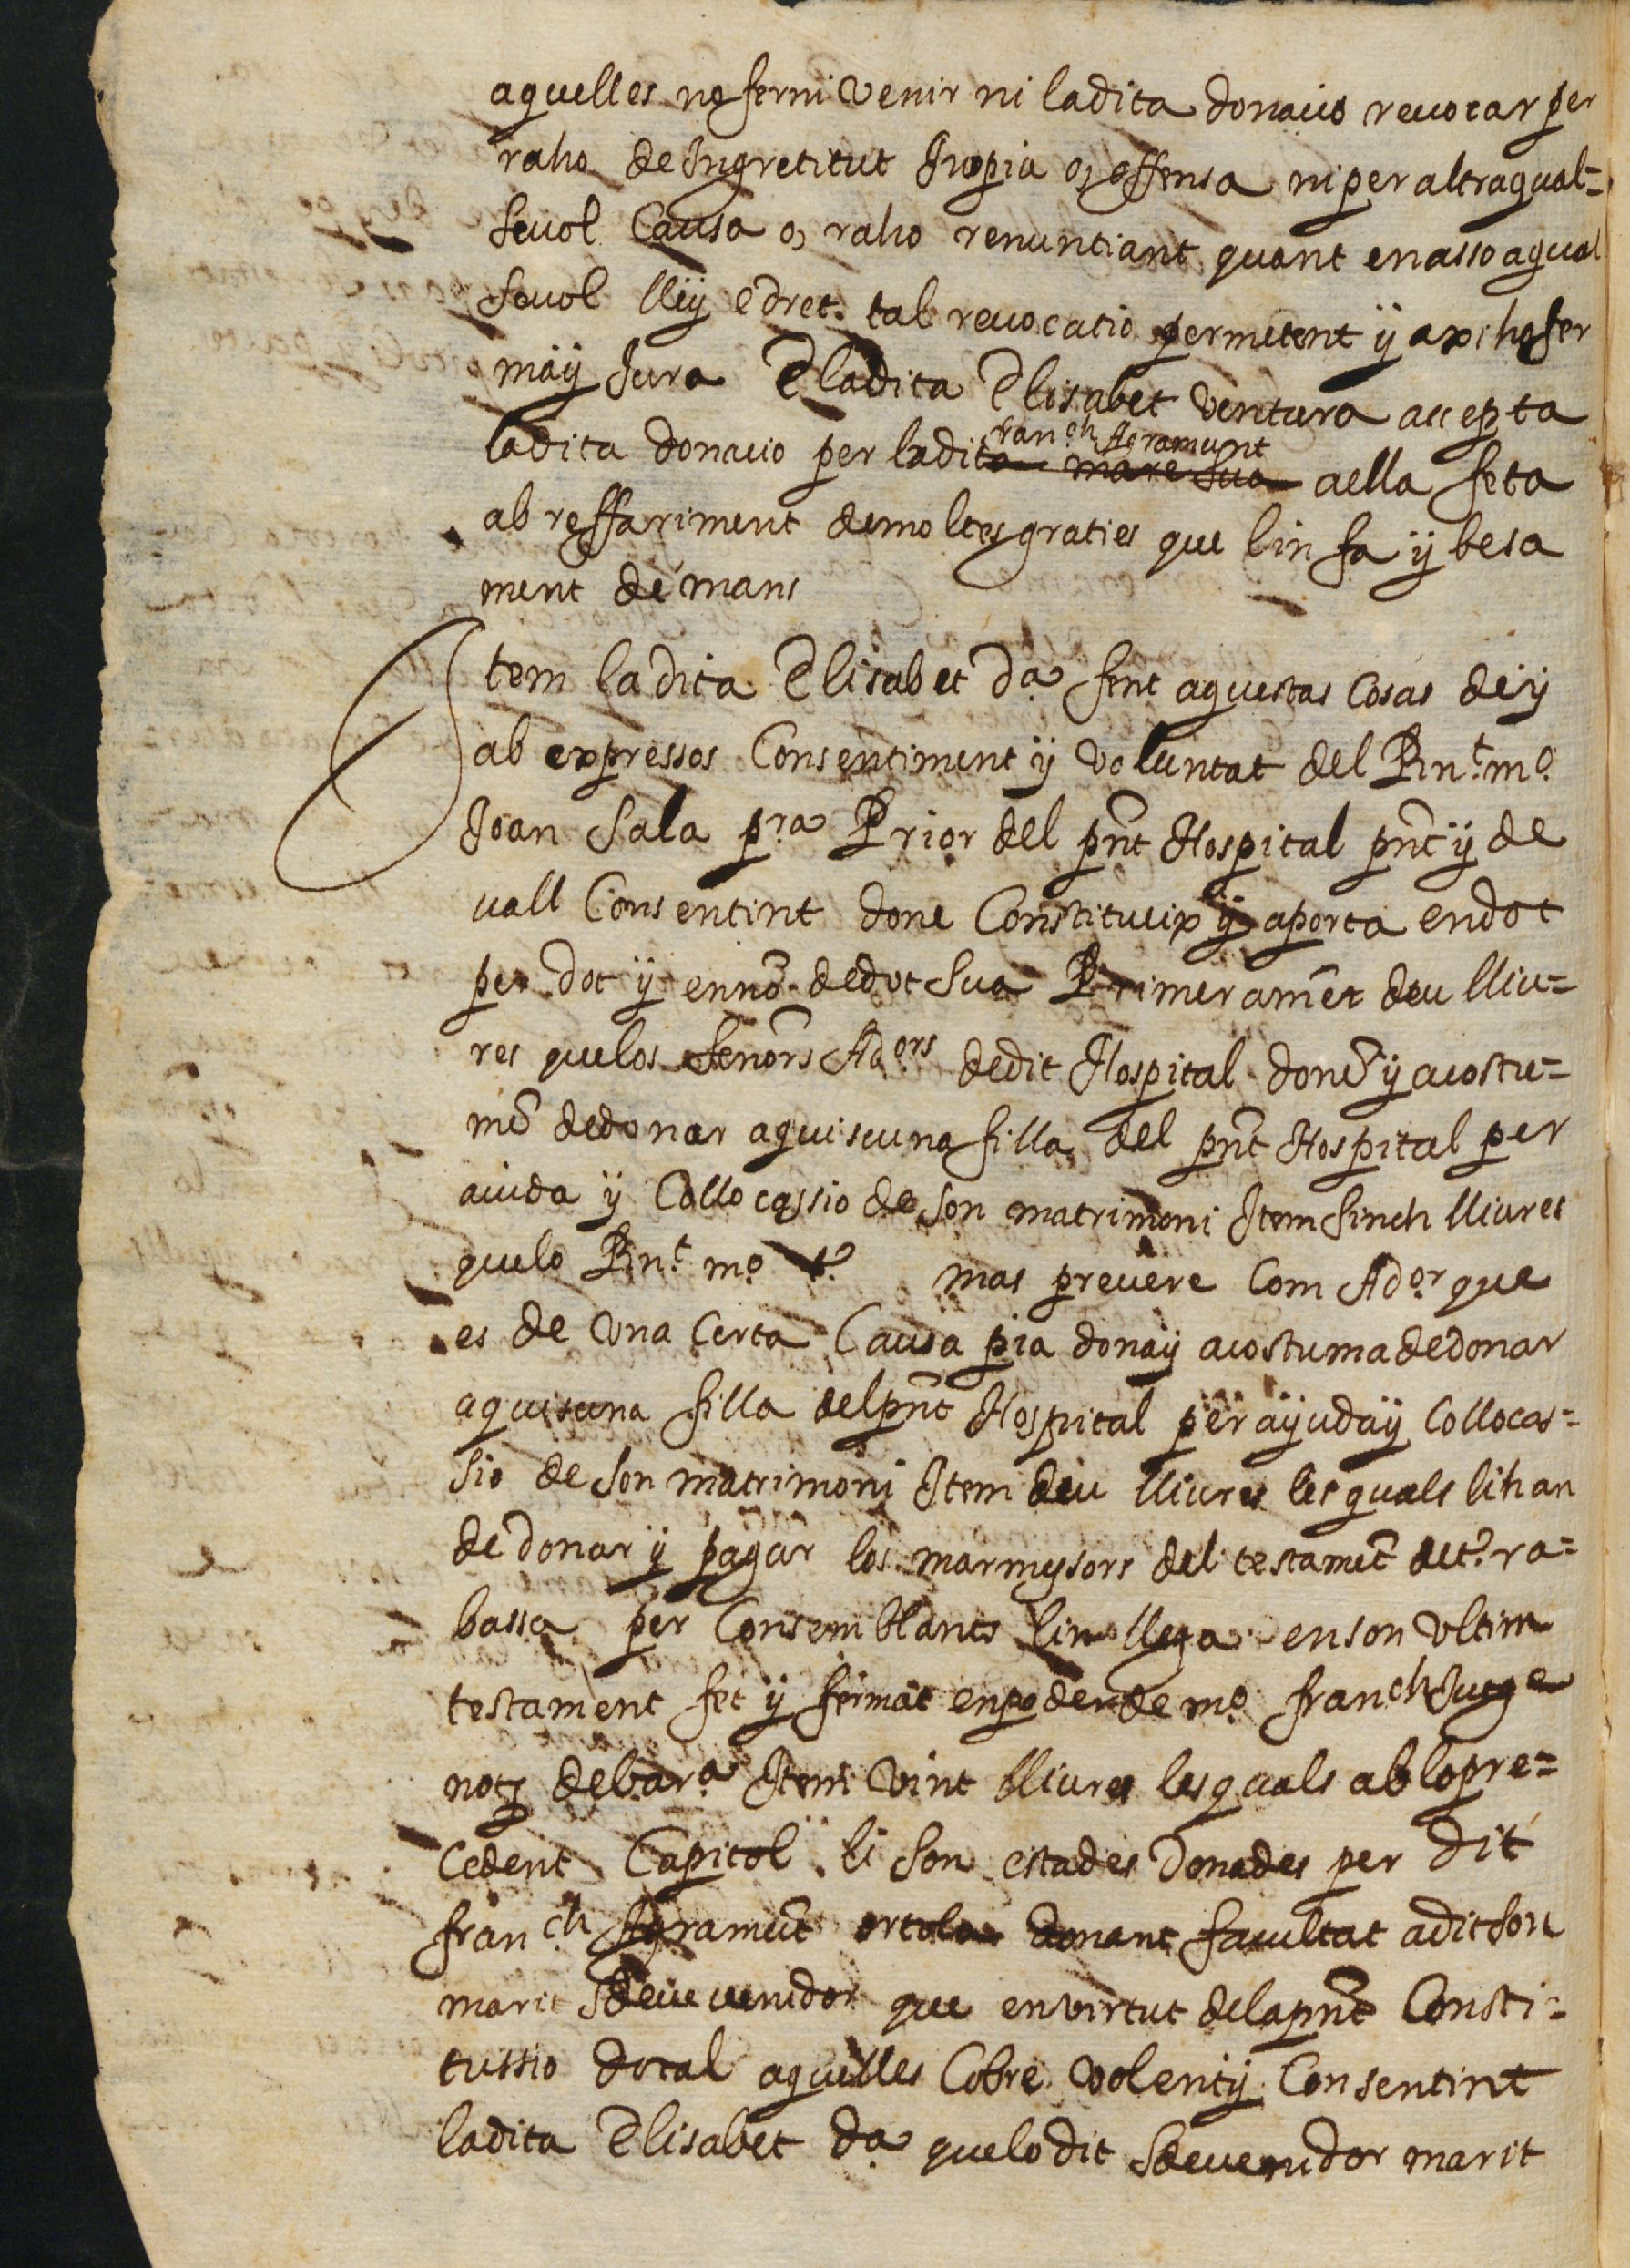 aquelles no fer ni venir ni la dita donacio reuocar per
raho de Ingretitut Inopia o, offensa ni per altra qual=
seuol Causa o, raho renuntiant quant en asso a qual
seuol lley e dret tal reuocatio permetent ÿ axi ho fer
maÿ Jura E la dita Elisabet Ventura accepta
ran.ch Agramunt
ladita donacio per ladita mare sua a ella feta
ab refferiment de moltes graties que lin fa ÿ besa
ment de mans
Item la dita Elisabet Da fent aquestas Cosas de ÿ
ab expressos Consentiment ÿ voluntat del Rnt. mo.
Joan Sala pra Prior del pnt Hospital pnt ÿ de
uall Consentint done Constitueix ÿ aporta en dot
per dot ÿ en no de dot sua Primeramet deu lliu=
res que los señors Adors de dit Hospital done ÿ acostu=
me de donar a quiscuna filla del pnt Hospital per
aiuda ÿ Collocassio de son matrimoni Item sinch lliures
que lo Rnt. mo. t. mas preuere Com Ador. que
es de vna Certa Causa pia dona ÿ acostuma de donar
a quiscuna filla del pnt Hospital per aÿuda ÿ Collocas=
sio de son matrimoni Item deu lliures les quals li han
de donar ÿ pagar los marmysors del testamet de t. ra=
bassa per Consemblants lin llega en son vltim
testament fet ÿ fermat en poder de mo. franch
notj de bara. Item vint lliures les quals ab lo pre=
Cedent Capitol li son estades donades per dit
fran.ch Agramut ortola donant facultat a dit son
marit Sdeuevenidor que en virtut de la pnt Consti=
tussio dotal aquelles Cobre volent ÿ Consentint
la dita Elisabet Da que lo dit Sdeuenidor marit